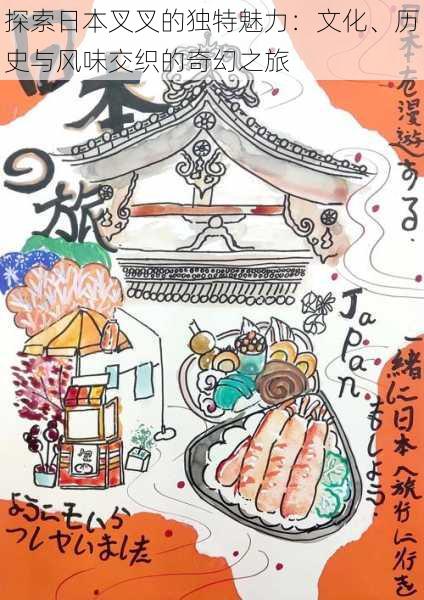 探索日本叉叉的独特魅力：文化、历
史与风味交织的奇幻之旅
日本の旅
日本を漫遊する.
Japan
もしよう.
一緒に日本へ旅行に行を
ようこそいら
つしゃいました